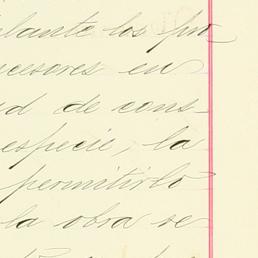 elante los pro
cesores en
ud de cons-
especie, la
permitirlo
la obra se